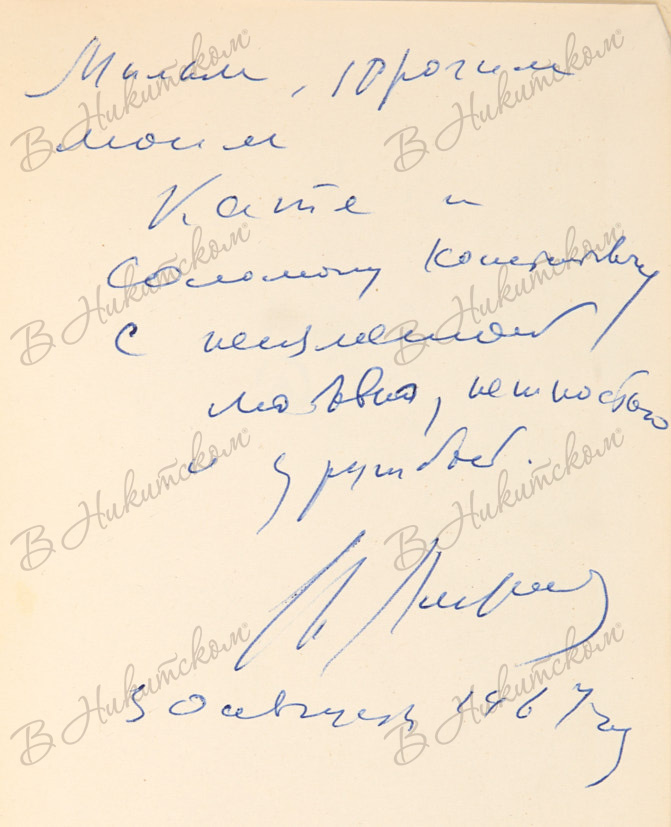 Милым, дорогим
моим
Кате и
Соломону
с неизменной
любовью, нежностью
и дружбой.
30 августа 1967 г.
В Никитском
В Никитском
В Никитском
В Никитском
В Никитском
В Никитском
В Никитском
В Никитском